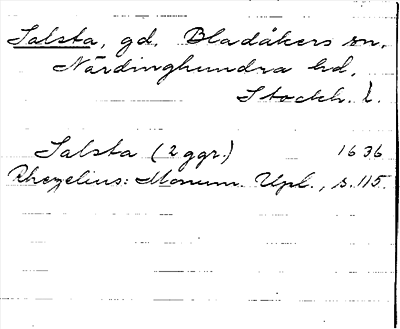 Salsta, gd. Bladåkers sn.
Närdinghundra hd.
Stockh. l.
Salsta (2 ggr.) 1636
Rhezelius: Monum. Upl., s. 115.